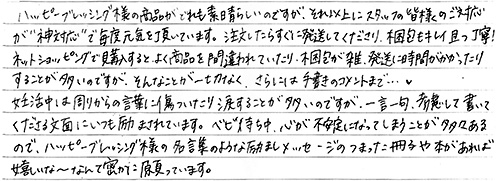 ハッピーブレッシング様の商品がどれも素晴らしいのですが、それ以上にスタッフの皆様のご対応
が"神対応"で毎度元気を頂いています。注文したらすぐに発送してくださり、梱包もキレイ且つ丁寧!
ネットショッピングで購入すると、よく商品を間違われていたり、梱包が雑、発送に時間がかかったり
することが多いのですが、そんなことが一切なく、さらには手書きのコメントまで…♥
妊活中は周りからの言葉に傷ついたり涙することが多いのですが、一言一句、考慮して書いて
くださる文面にいつも励まされています。ベビ待ち中、心が不安定になってしまうことが多々ある
ので、ハッピーブレッシング様の名言集のような励ましメッセージのつまった冊子や本があれば
嬉しいな〜なんて密かに願っています。